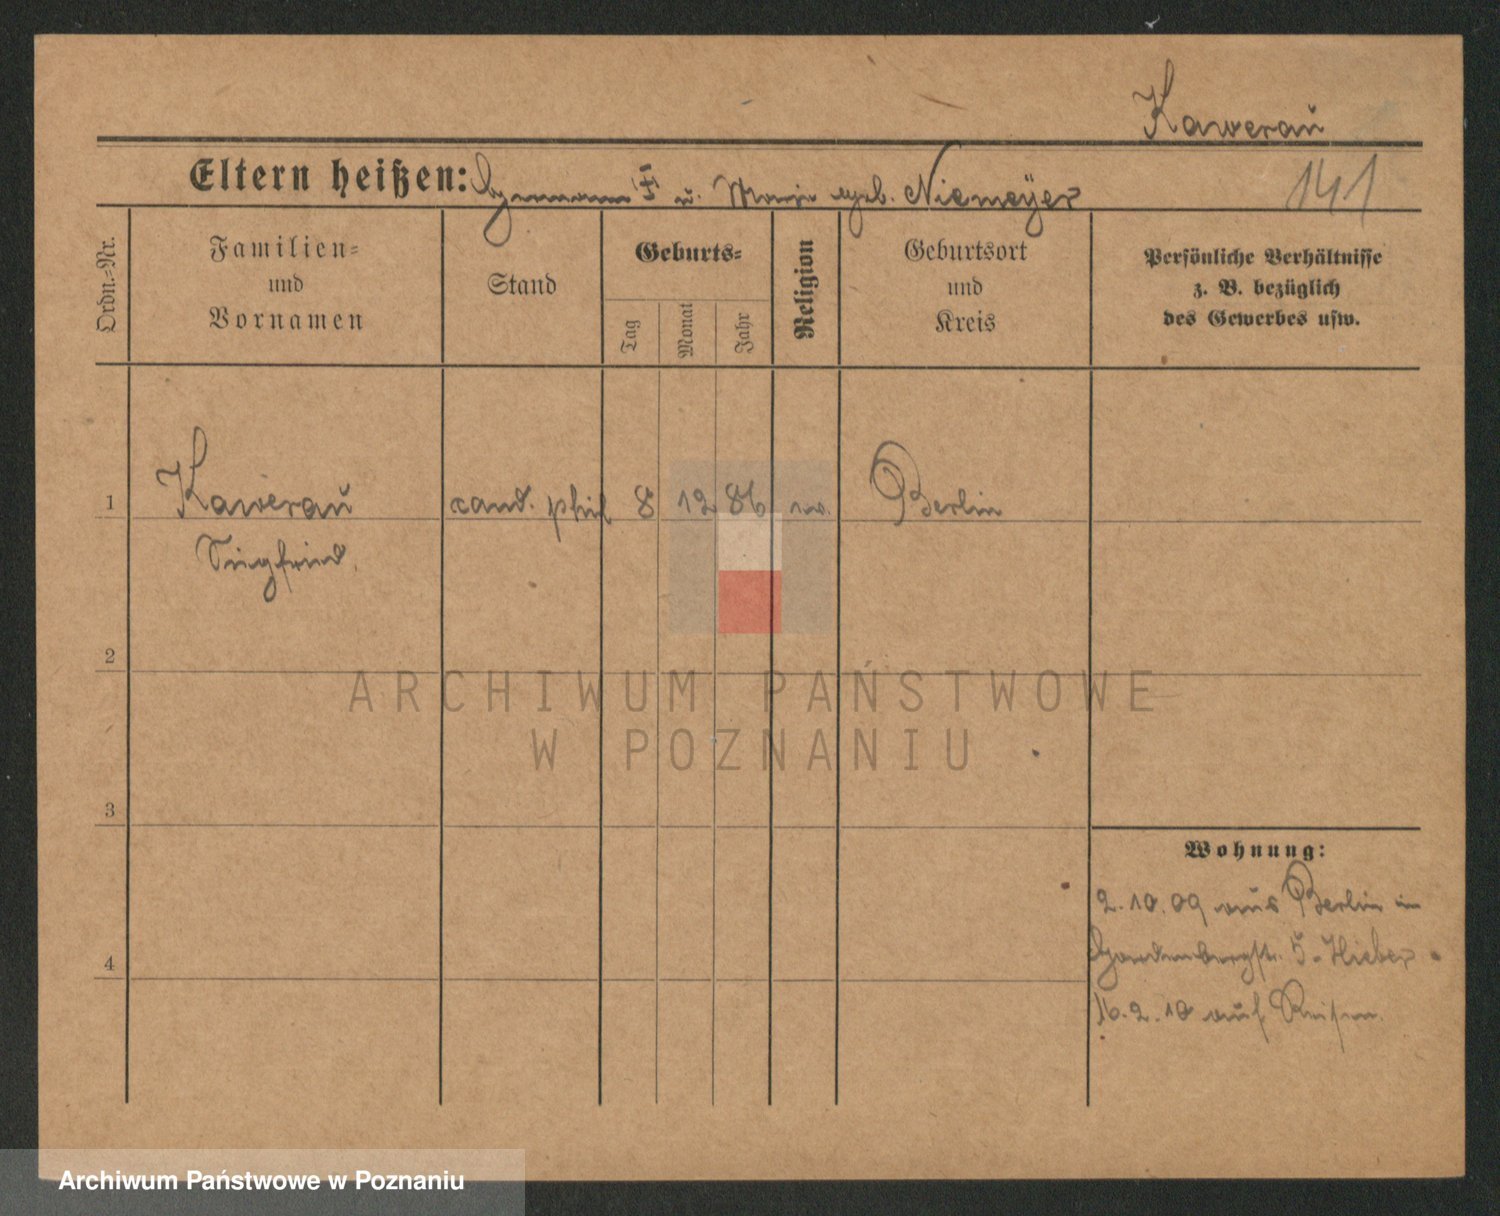 Kawerau
Eltern heißen: Hermann u. Marie geb. Niemeyer
141
Ordn.-Nr.
Familien-
und
Vornamen
Stand
Geburts-
Tag
Monat
Jahr
Religion
Geburtsort
und
Kreis
Persönliche Verhältnisse
z. B. bezüglich
des Gewerbes usw.
1
Kawerau
cand. phil
8
12
86
ev.
Berlin
Siegfried.
2
ARCHIWUM PAŃSTWOWE
W POZNANIU
3
Wohnung:
2.10.09 aus Berlin in
Hardenbergstr. 5
4
16.2.10 auf Reisen.
Archiwum Państwowe w Poznaniu